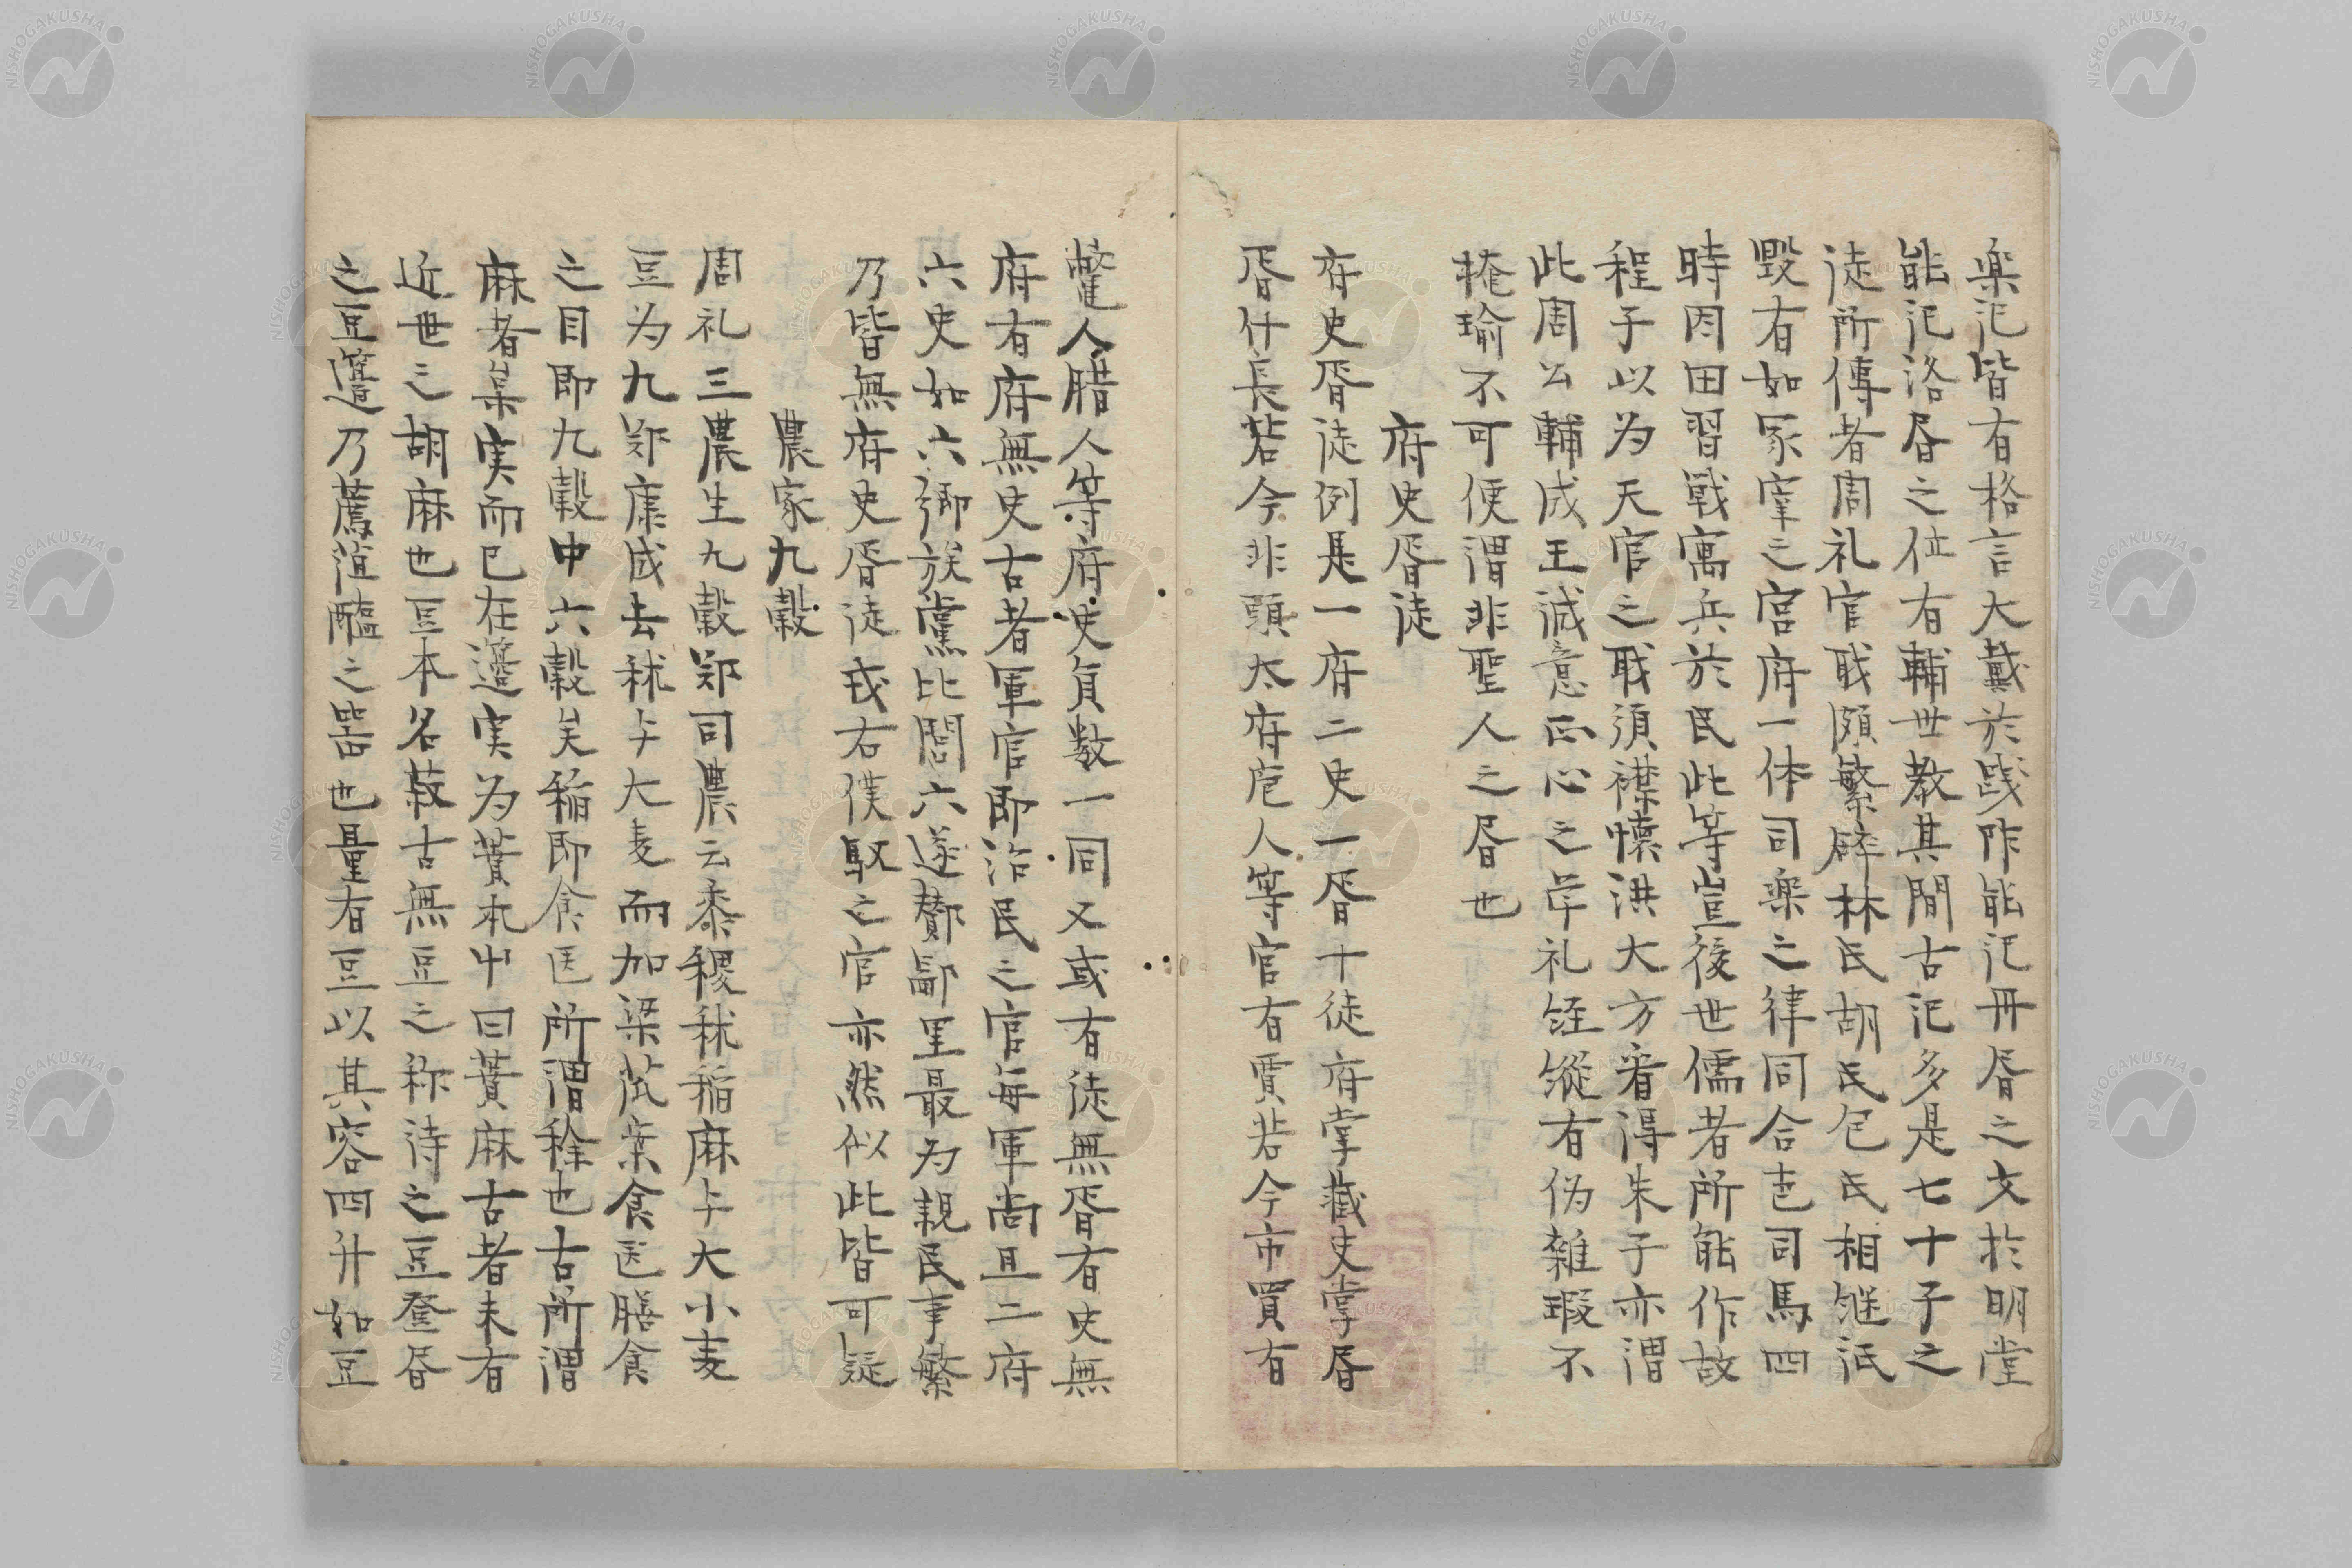 楽記皆有格言大戴於践阼能記丹書之文於明堂
能記洛書之位有輔世教其間古記多是七十子之
徒所傳者周礼官職頗繁碎林氏胡氏包氏相継詆
毀有如冢宰之宮府一体司楽之律同合声司馬四
時因田習戦寓兵於民此等豈後世儒者所能作故
程子以為天官之職須襟懐洪大方看得朱子亦謂
此周公輔成王誠意正心之 礼経縦有偽雑瑕不
掩瑜不可便謂非聖人之書也
府史胥徒
府史胥徒例是一府二史一胥十徒府掌蔵史掌書
胥什長若今非頭太府庖人等官有賈若今市買有
鼈人腊人等府史員数一同又或有徒無胥有史無
府有府無史古者軍官即治民之官毎軍尚且二府
六史如六郷族党比閭六遂酇鄙里最為親民事繁
乃皆無府史胥徒戎右僕馭之官亦然似此皆可疑
農家九穀
周礼三農生九穀鄭司農云黍稷秫稲麻与大小麦
豆為九鄭康成去秫与大麦而加粱苽案食医膳食
之目即九穀中六穀矣稲即食医所謂稌也古所謂
麻者枲実而已在籩実為蕡本艸曰蕡麻古者未有
近世之胡麻也豆本名菽古無豆之称待之豆登書
之豆籩乃薦菹醢之器也量有豆以其容四升如豆